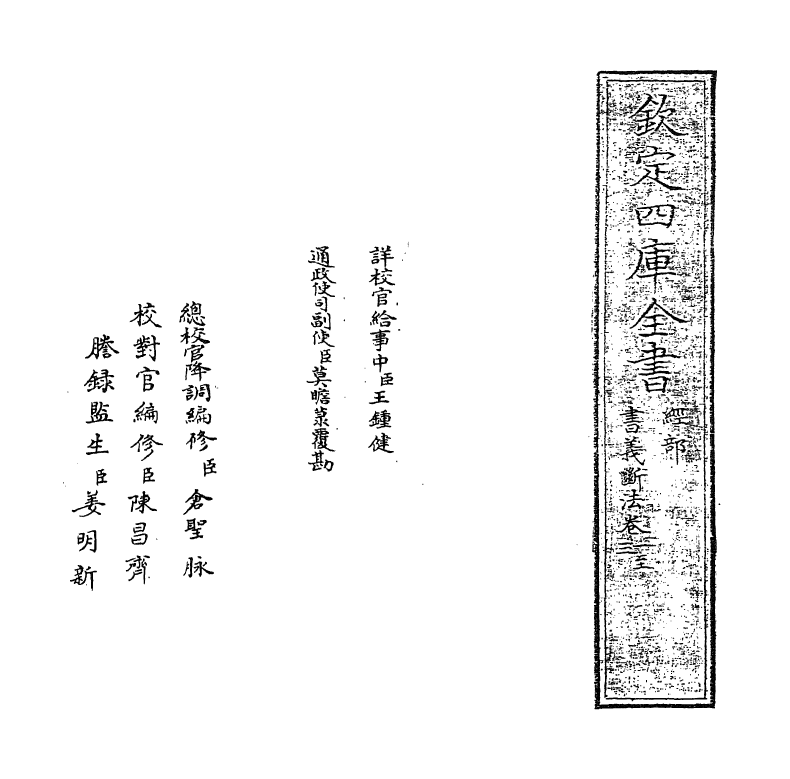 欽定四庫全書
經部
書義斷法卷二至三
詳校官給事中臣王鍾健
通政使司副使臣莫瞻菉覆勘
總校官降調編修臣倉聖脉
校對官編修臣陳昌齊
謄録監生臣姜明新